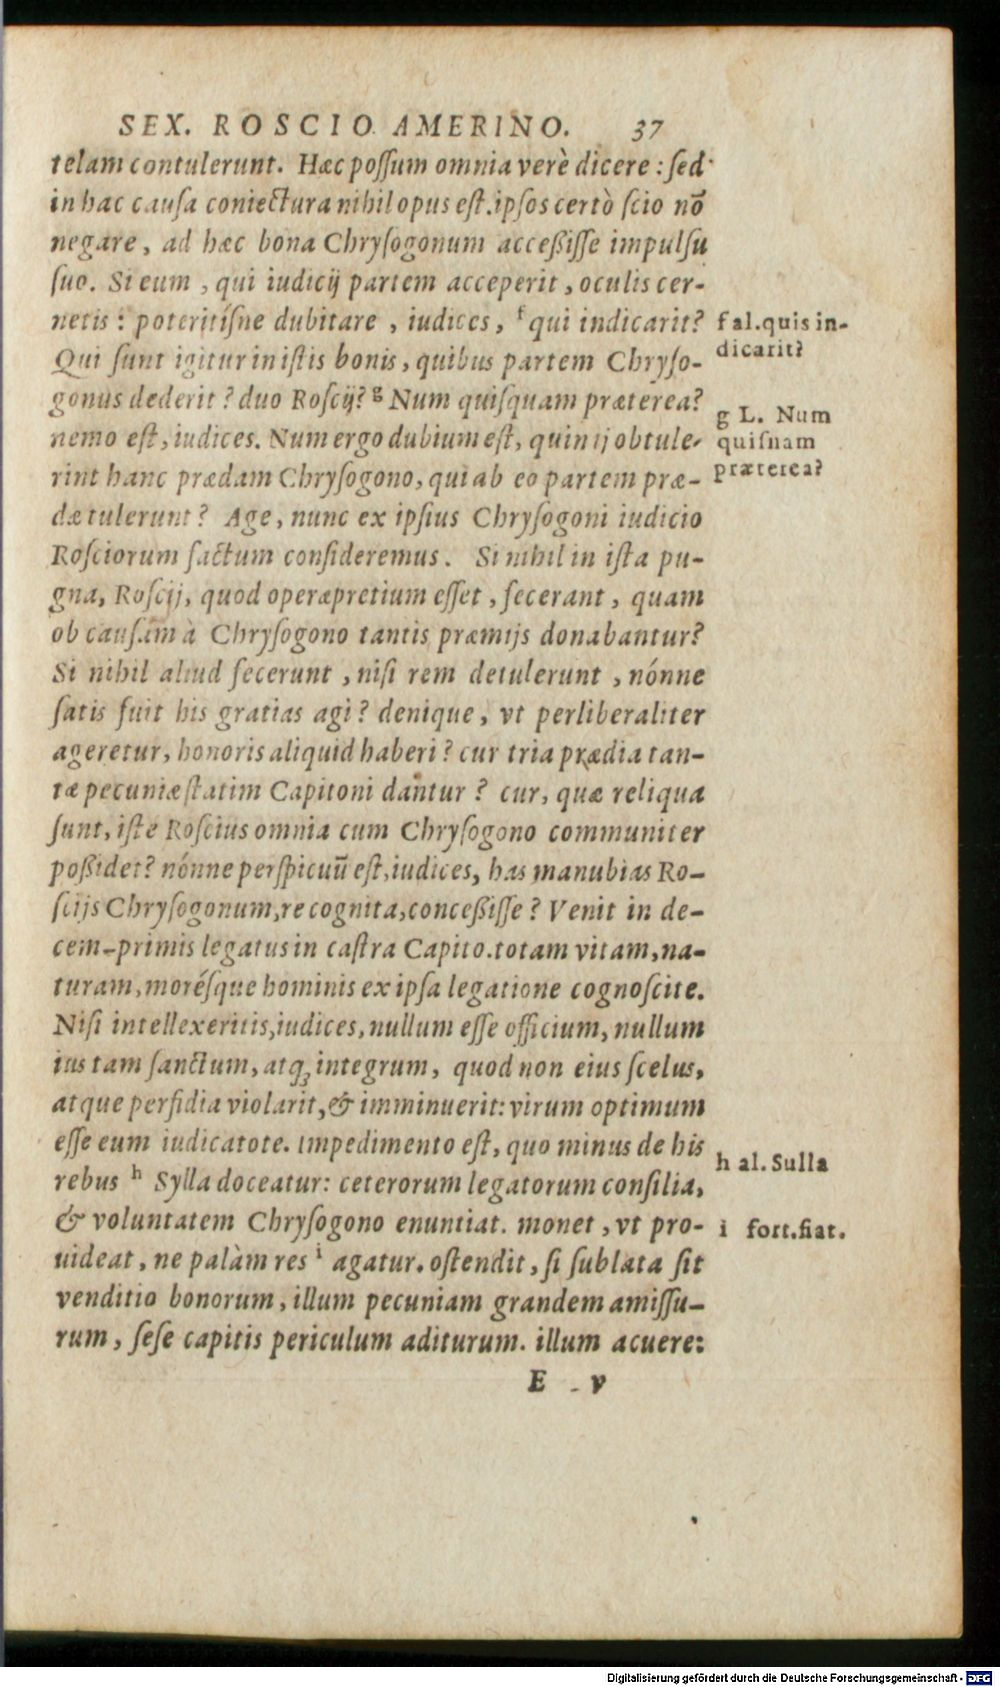 SEX. ROSCIO AMERINO. 37
telam contulerunt. Hæc poſſum omnia verè dicere : ſed
in hac cauſa coniectura nihil opus eſt. ipſos certò ſcio nō
negare, ad hæc bona Chryſogonum acceßiſſe impulſu
ſuo. Si eum , qui iudicij partem acceperit, oculis cer-
netis : poteritíſne dubitare , iudices, ᶠ qui indicarit?
f al. quis in-
dicarit?
Qui ſunt igitur in iſtis bonis, quibus partem Chryſo-
gonus dederit ? duo Roſcij? ᵍ Num quiſquam præterea?
g L. Num
quiſnam
præterea?
nemo eſt, iudices. Num ergo dubium eſt, quin ij obtule-
rint hanc prædam Chryſogono, qui ab eo partem præ-
dæ tulerunt ? Age, nunc ex ipſius Chryſogoni iudicio
Roſciorum factum conſideremus. Si nihil in iſta pu-
gna, Roſcij, quod operæpretium eſſet, fecerant, quam
ob cauſam à Chryſogono tantis præmijs donabantur?
Si nihil aliud fecerunt , niſi rem detulerunt , nónne
ſatis fuit his gratias agi ? denique, vt perliberaliter
ageretur, honoris aliquid haberi ? cur tria prædia tan-
tæ pecuniæ ſtatim Capitoni dantur ? cur, quæ reliqua
ſunt, iſte Roſcius omnia cum Chryſogono communiter
poßidet? nónne perſpicuū eſt, iudices, has manubias Ro-
ſcijs Chryſogonum, re cognita, conceßiſſe ? Venit in de-
cem-primis legatus in caſtra Capito. totam vitam, na-
turam, moréſque hominis ex ipſa legatione cognoſcite.
Niſi intellexeritis, iudices, nullum eſſe officium, nullum
ius tam ſanctum, atq; integrum, quod non eius ſcelus,
atque perfidia violarit, & imminuerit: virum optimum
eſſe eum iudicatote. Impedimento eſt, quo minus de his
rebus ʰ Sylla doceatur: ceterorum legatorum conſilia,
h al. Sulla
& voluntatem Chryſogono enuntiat. monet , vt pro-
i fort. fiat.
uideat, ne palàm res ⁱ agatur. oſtendit, ſi ſublata ſit
venditio bonorum, illum pecuniam grandem amiſſu-
rum, ſeſe capitis periculum aditurum. illum acuere:
E v
Digitalisierung gefördert durch die Deutsche Forschungsgemeinschaft - DFG